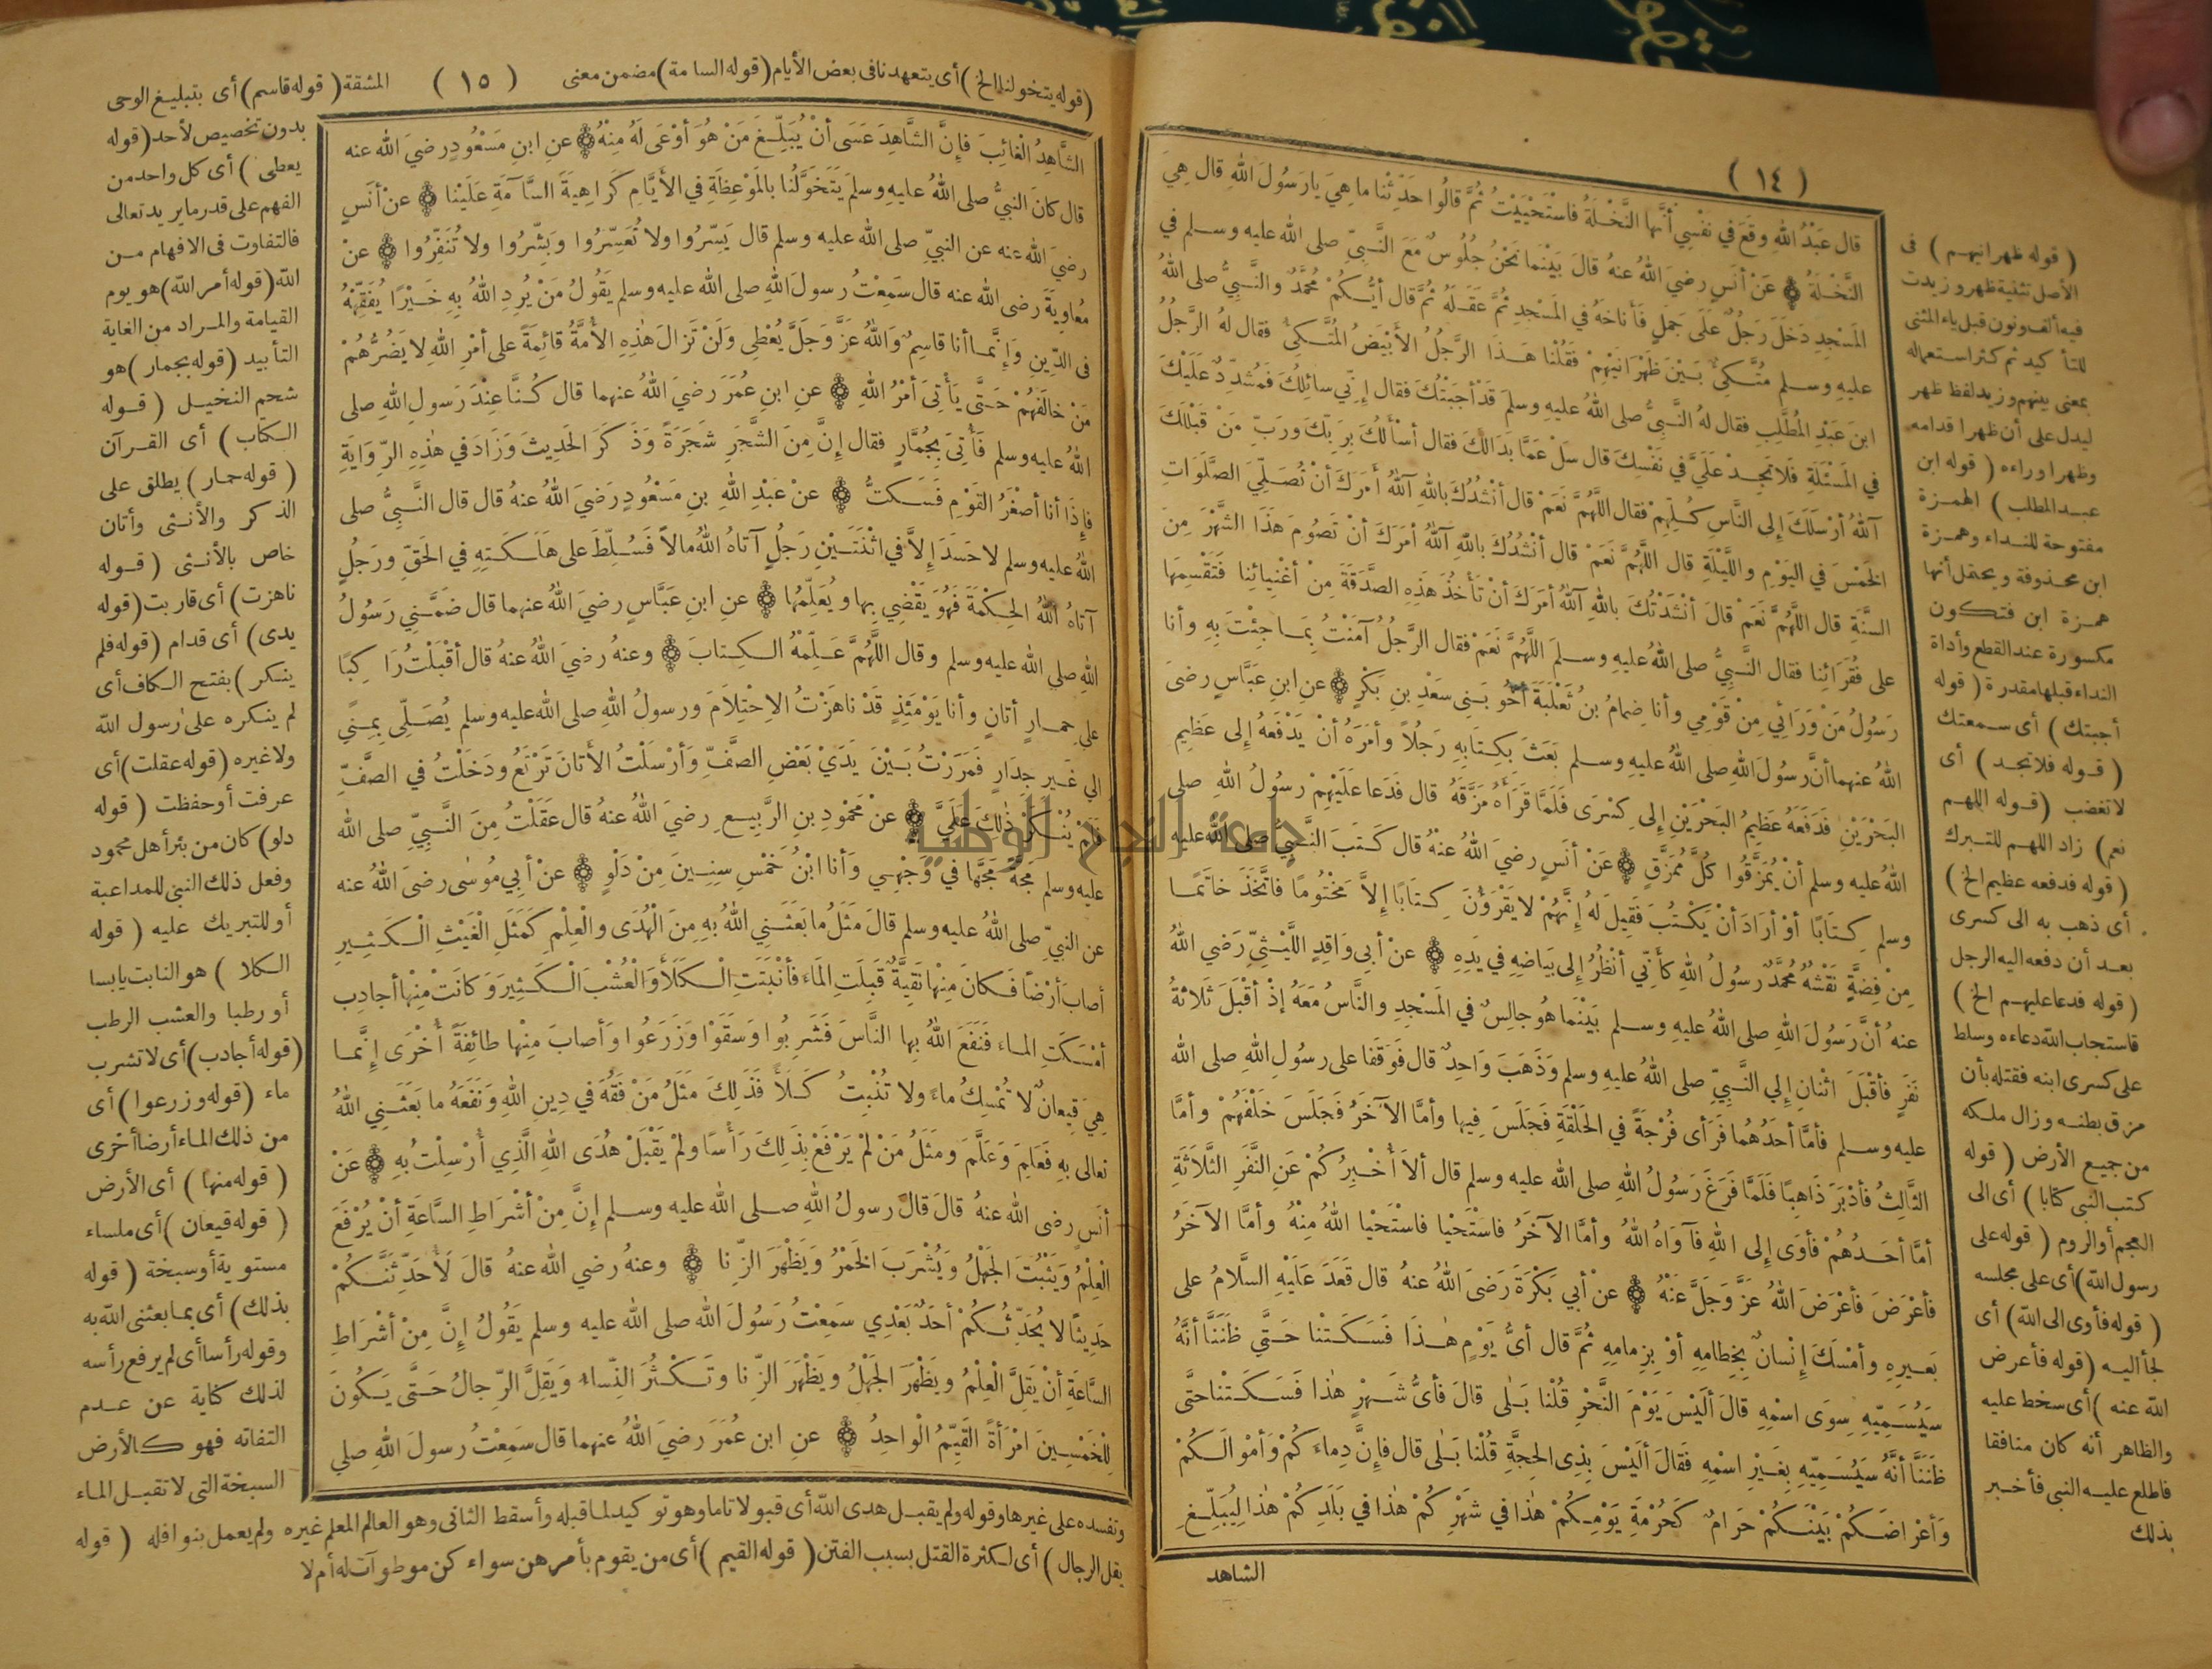 ( ١٤ )
قال عَبْدُ اللهِ وقَعَ في نَفْسِي أنَّها النَّخْلَةُ فاسْتَحْيَيْتُ ثُمَّ قالُوا حَدِّثْنا ما هِيَ يا رَسُولَ اللهِ قال هِيَ
النَّخْلَةُ عَنْ أنَسٍ رضيَ اللهُ عنهُ قالَ بَيْنَما نَحْنُ جُلُوسٌ مَعَ النَّبيِّ صلى الله عليه وسلم في
المَسْجِدِ دَخَلَ رَجُلٌ عَلَى جَمَلٍ فَأَناخَهُ في المَسْجِدِ ثُمَّ عَقَلَهُ ثُمَّ قال أيُّكُمْ مُحَمَّدٌ والنَّبيُّ صلى اللهُ
عليهِ وسلم مُتَّكِئٌ بَيْنَ ظَهْرَانَيْهِمْ فَقُلْنا هَذَا الرَّجُلُ الأَبْيَضُ المُتَّكِئُ فقال لهُ الرَّجُلُ
ابنَ عَبْدِ المُطَّلِبِ فقال لهُ النَّبيُّ صلى اللهُ عليهِ وسلم قَدْ أجَبْتُكَ فقال إنِّي سائِلُكَ فَمُشَدِّدٌ عَلَيْكَ
في المَسْئَلَةِ فَلا تَجِدْ عَلَيَّ في نَفْسِكَ قال سَلْ عَمَّا بَدَا لَكَ فقال أسْأَلُكَ بِرَبِّكَ ورَبِّ مَنْ قَبْلَكَ
آللهُ أرْسَلَكَ إلى النَّاسِ كُلِّهِمْ فقال اللَّهُمَّ نَعَمْ قال أنْشُدُكَ باللهِ آللهُ أمَرَكَ أنْ تُصَلِّيَ الصَّلَوَاتِ
الخَمْسَ في اليَوْمِ واللَّيْلَةِ قال اللَّهُمَّ نَعَمْ قال أنْشُدُكَ باللهِ آللهُ أمَرَكَ أنْ تَصُومَ هَذَا الشَّهْرَ مِنَ
السَّنَةِ قال اللَّهُمَّ نَعَمْ قالَ أنْشُدُكَ باللهِ آللهُ أمَرَكَ أنْ تَأْخُذَ هَذِهِ الصَّدَقَةَ مِنْ أغْنِيائِنا فَتَقْسِمَها
على فُقَرَائِنا فقال النَّبيُّ صلى اللهُ عليهِ وسلم اللَّهُمَّ نَعَمْ فقال الرَّجُلُ آمَنْتُ بِمَا جِئْتَ بِهِ وأنا
رَسُولُ مَنْ وَرَائِي مِنْ قَوْمِي وأنا ضِمامُ بنُ ثَعْلَبَةَ أخُو بَنِي سَعْدِ بنِ بَكْرٍ عنِ ابنِ عَبَّاسٍ رضيَ
اللهُ عنهما أنَّ رَسُولَ اللهِ صلى اللهُ عليهِ وسلم بَعَثَ بِكِتَابِهِ رَجُلاً وأمَرَهُ أنْ يَدْفَعَهُ إلى عَظِيمِ
البَحْرَيْنِ فدَفَعَهُ عَظِيمُ البَحْرَيْنِ إلى كِسْرَى فَلَمَّا قَرَأَهُ مَزَّقَهُ قال فَدَعا عَلَيْهِمْ رسُولُ اللهِ صلى
اللهُ عليه وسلم أنْ يُمَزَّقُوا كُلَّ مُمَزَّقٍ عَنْ أنَسٍ رضيَ اللهُ عنهُ قال كَتَبَ النَّبيُّ صلى الله عليه
وسلم كِتَابًا أوْ أرَادَ أنْ يَكْتُبَ فَقِيلَ لَهُ إنَّهُمْ لا يَقْرَؤُنَ كِتَابًا إلاَّ مَخْتُومًا فاتَّخَذَ خاتَمًا
مِنْ فِضَّةٍ نَقْشُهُ مُحَمَّدٌ رسُولُ اللهِ كأنِّي أنْظُرُ إلى بَيَاضِهِ في يَدِهِ عنْ أبي وَاقِدٍ اللَّيْثِيِّ رَضي اللهُ
عنهُ أنَّ رَسُولَ اللهِ صلى اللهُ عليهِ وسلم بَيْنَما هُوَ جالِسٌ في المَسْجِدِ والنَّاسُ مَعَهُ إذْ أقْبَلَ ثَلاثَةُ
نَفَرٍ فأقْبَلَ اثْنانِ إلى النَّبيِّ صلى اللهُ عليهِ وسلم وَذَهَبَ وَاحِدٌ قال فَوَقَفا على رسُولِ اللهِ صلى الله
عليه وسلم فأمَّا أحَدُهُما فَرَأى فُرْجَةً في الحَلْقَةِ فَجَلَسَ فِيها وأمَّا الآخَرُ فَجَلَسَ خَلْفَهُمْ وأمَّا
الثَّالِثُ فأدْبَرَ ذَاهِبًا فَلَمَّا فَرَغَ رَسُولُ اللهِ صلى الله عليه وسلم قال ألاَ أُخْبِرُكُمْ عَنِ النَّفَرِ الثَّلاثَةِ
أمَّا أحَدُهُمْ فأوَى إلى اللهِ فآوَاهُ اللهُ وأمَّا الآخَرُ فاسْتَحْيا فاسْتَحْيا اللهُ مِنْهُ وأمَّا الآخَرُ
فأعْرَضَ فأعْرَضَ اللهُ عَزَّ وَجَلَّ عَنْهُ عنْ أبي بَكْرَةَ رَضيَ اللهُ عنهُ قال قَعَدَ عَلَيْهِ السَّلامُ على
بَعِيرِهِ وأمْسَكَ إنْسانٌ بِخِطامِهِ أوْ بِزِمامِهِ ثُمَّ قال أيُّ يَوْمٍ هٰذَا فَسَكَتْنا حَتَّى ظَنَنَّا أنَّهُ
سَيُسَمِّيهِ سِوَى اسْمِهِ قالَ ألَيْسَ يَوْمَ النَّحْرِ قُلْنا بَلى قالَ فأيُّ شَهْرٍ هٰذا فَسَكَتْنا حتَّى
ظَنَنَّا أنَّهُ سَيُسَمِّيهِ بِغَيْرِ اسْمِهِ فَقالَ ألَيْسَ بِذِي الحِجَّةِ قُلْنا بَلى قال فإنَّ دِماءَكُمْ وَأمْوالَكُمْ
وَأعْراضَكُمْ بَيْنَكُمْ حَرَامٌ كَحُرْمَةِ يَوْمِكُمْ هٰذا في شَهْرِكُمْ هٰذا في بَلَدِكُمْ هٰذا لِيُبَلِّغِ
الشاهد
( قوله ظهرانيهم ) فى
الأصل تثنية ظهر وزيدت
فيه ألف ونون قبل ياء المثنى
للتأكيد ثم كثر استعماله
بمعنى بينهم وزيد لفظ ظهر
ليدل على أن ظهرا قدامه
وظهرا وراءه ( قوله ابن
عبد المطلب ) الهمزة
مفتوحة للنداء وهمزة
ابن محذوفة ويحتمل أنها
همزة ابن فتكون
مكسورة عند القطع وأداة
النداء قبلها مقدرة ( قوله
أجبتك ) أى سمعتك
( قوله فلا تجد ) أى
لا تغضب ( قوله اللهم
نعم ) زاد اللهم للتبرك
( قوله فدفعه عظيم الخ )
أى ذهب به الى كسرى
بعد أن دفعه اليه الرجل
( قوله فدعا عليهم الخ )
فاستجاب الله دعاءه وسلط
على كسرى ابنه فقتله بأن
مزق بطنه وزال ملكه
من جميع الأرض ( قوله
كتب النبى كتابا ) أى الى
العجم أو الروم ( قوله على
رسول الله ) أى على مجلسه
( قوله فأوى الى الله ) أى
لجأ اليه ( قوله فأعرض
الله عنه ) أى سخط عليه
والظاهر أنه كان منافقا
فاطلع عليه النبى فأخبر
بذلك
( قوله يتخولنا الخ ) أى يتعهدنا فى بعض الأيام ( قوله السامة ) مضمن معنى ( ١٥ ) المشقة ( قوله قاسم ) أى بتبليغ الوحى
الشَّاهِدُ الغْائِبَ فإنَّ الشَّاهِدَ عَسَى أنْ يُبَلِّغَ مَنْ هُوَ أوْعَى لَهُ مِنْهُ عنِ ابنِ مَسْعُودٍ رضيَ الله عنه
قال كانَ النبيُّ صلى اللهُ عليهِ وسلم يَتَخَوَّلُنا بالمَوْعِظَةِ في الأيَّامِ كَرَاهِيَةَ السَّآمَةِ عَلَيْنا عنْ أنَسٍ
رضيَ الله عنه عن النبيِّ صلى الله عليه وسلم قال يَسِّرُوا ولا تُعَسِّرُوا وَبَشِّرُوا ولا تُنَفِّرُوا عنْ
مُعاوِيَةَ رضى الله عنه قال سَمِعْتُ رسولَ اللهِ صلى الله عليه وسلم يَقُولُ مَنْ يُرِدِ اللهُ بِهِ خَيْرًا يُفَقِّهْهُ
فى الدِّينِ وَإنَّما أنا قاسِمٌ وَاللهُ عَزَّ وَجَلَّ يُعْطِي وَلَنْ تَزَالَ هٰذِهِ الأُمَّةُ قائِمَةً على أمْرِ اللهِ لا يَضُرُّهُمْ
مَنْ خالَفَهُمْ حَتَّى يَأْتِيَ أمْرُ اللهِ عنِ ابنِ عُمَرَ رضيَ اللهُ عنهما قال كُنَّا عِنْدَ رَسولِ اللهِ صلى
اللهُ عليه وسلم فَأُتِيَ بِجُمَّارٍ فقال إنَّ مِنَ الشَّجَرِ شَجَرَةً وَذَكَرَ الحَدِيثَ وَزَادَ في هٰذِهِ الرِّوَايَةِ
فإذَا أنا أصْغَرُ القَوْمِ فَسَكَتُّ عنْ عَبْدِ اللهِ بنِ مَسْعُودٍ رَضيَ اللهُ عنهُ قال قال النَّبيُّ صلى
اللهُ عليه وسلم لا حَسَدَ إلاَّ في اثْنَتَيْنِ رَجُلٍ آتاهُ اللهُ مالاً فَسُلِّطَ على هَلَكَتِهِ في الحَقِّ ورَجُلٍ
آتاهُ اللهُ الحِكْمَةَ فَهُوَ يَقْضِي بِها ويُعَلِّمُها عنِ ابنِ عَبَّاسٍ رضيَ اللهُ عنهما قال ضَمَّنِي رَسُولُ
اللهِ صلى الله عليه وسلم وقال اللَّهُمَّ عَلِّمْهُ الكِتابَ وعنهُ رضيَ اللهُ عنهُ قال أقْبَلْتُ رَاكِبًا
على حِمارٍ أتانٍ وأنا يَوْمَئِذٍ قَدْ ناهَزْتُ الاِحْتِلاَمَ ورسولُ اللهِ صلى الله عليه وسلم يُصَلِّي بِمِنًى
إلى غَيرِ جِدَارٍ فَمَرَرْتُ بَيْنَ يَدَيْ بَعْضِ الصَّفِّ وَأرْسَلْتُ الأتانَ تَرْتَعُ ودَخَلْتُ في الصَّفِّ
فَلَمْ يُنْكَرْ ذٰلِكَ عَلَيَّ عنْ مَحْمُودِ بنِ الرَّبِيعِ رضيَ اللهُ عنهُ قال عَقَلْتُ مِنَ النَّبيِّ صلى الله
عليه وسلم مَجَّةً مَجَّها في وَجْهِي وَأنا ابْنُ خَمْسِ سِنِينَ مِنْ دَلْوٍ عنْ أبي مُوسى رضيَ اللهُ عنه
عن النبيِّ صلى اللهُ عليه وسلم قالَ مَثَلُ ما بَعَثَنِي اللهُ بِهِ مِنَ الْهُدَى والْعِلْمِ كَمَثَلِ الْغَيْثِ الْكَثِيرِ
أصابَ أرْضاً فَكانَ مِنْها نَقِيَّةٌ قَبِلَتِ المَاءَ فأنْبَتَتِ الْكَلَأَ وَالْعُشْبَ الْكَثِيرَ وَكانَتْ مِنْها أجادِبُ
أمْسَكَتِ الماءَ فَنَفَعَ اللهُ بِها النَّاسَ فَشَرِبُوا وَسَقَوْا وَزَرَعُوا وَأصابَ مِنْها طائِفَةً أُخْرَى إنَّما
هِيَ قِيعانٌ لا تُمْسِكُ ماءً ولا تُنْبِتُ كَلَأً فَذَلِكَ مَثَلُ مَنْ فَقُهَ في دِينِ اللهِ وَنَفَعَهُ ما بَعَثَنِي اللهُ
تعالى بِهِ فَعَلِمَ وَعَلَّمَ وَمَثَلُ مَنْ لَمْ يَرْفَعْ بِذَلِكَ رَأْسًا ولَمْ يَقْبَلْ هُدَى اللهِ الَّذِي أُرْسِلْتُ بِهِ عَنْ
أنَسٍ رضى الله عنهُ قالَ قالَ رسولُ اللهِ صلى الله عليه وسلم إنَّ مِنْ أشْرَاطِ السَّاعَةِ أنْ يُرْفَعَ
الْعِلْمُ وَيَثْبُتَ الجَهْلُ وَيُشْرَبَ الخَمْرُ وَيَظْهَرَ الزِّنا وعنهُ رضي الله عنهُ قالَ لَأُحَدِّثَنَّكُمْ
حَدِيثًا لا يُحَدِّثُكُمْ أحَدٌ بَعْدِي سَمِعْتُ رَسُولَ الله صلى الله عليه وسلم يَقُولُ إنَّ مِنْ أشْرَاطِ
السَّاعَةِ أنْ يَقِلَّ الْعِلْمُ ويَظْهَرَ الجَهْلُ ويَظْهَرَ الزِّنا وتَكْثُرَ النِّساءُ وَيَقِلَّ الرِّجالُ حَتَّى يَكُونَ
لِلْخَمْسِينَ امْرَأةً القَيِّمُ الْوَاحِدُ عنِ ابنِ عُمَرَ رَضيَ اللهُ عنهما قال سَمِعْتُ رسولَ اللهِ صلى
بدون تخصيص لأحد ( قوله
يعطى ) أى كل واحد من
الفهم على قدر ما يريد تعالى
فالتفاوت فى الافهام من
الله ( قوله أمر الله ) هو يوم
القيامة والمراد من الغاية
التأبيد ( قوله بجمار ) هو
شحم النخيل ( قوله
الكتاب ) أى القرآن
( قوله حمار ) يطلق على
الذكر والأنثى وأتان
خاص بالأنثى ( قوله
ناهزت ) أى قاربت ( قوله
يدى ) أى قدام ( قوله فلم
ينكر ) بفتح الكاف أى
لم ينكره على رسول الله
ولا غيره ( قوله عقلت ) أى
عرفت أو حفظت ( قوله
دلو ) كان من بئر أهل محمود
وفعل ذلك النبى للمداعبة
أو للتبريك عليه ( قوله
الكلا ) هو النابت يابسا
أو رطبا والعشب الرطب
( قوله أجادب ) أى لا تشرب
ماء ( قوله وزرعوا ) أى
من ذلك الماء أرضا أخرى
( قوله منها ) أى الأرض
( قوله قيعان ) أى ملساء
مستوية أو سبخة ( قوله
بذلك ) أى بما بعثنى الله به
وقوله رأسا أى لم يرفع رأسه
لذلك كناية عن عدم
التفاته فهو كالأرض
السبخة التى لا تقبل الماء
وتفسده على غيرها وقوله ولم يقبل هدى الله أى قبولا تاما وهو توكيد لما قبله وأسقط الثانى وهو العالم المعلم غيره ولم يعمل بنوافله ( قوله
يقل الرجال ) أى لكثرة القتل بسبب الفتن ( قوله القيم ) أى من يقوم بأمرهن سواء كن موطوآت له أم لا
جامعة النجاح الوطنية